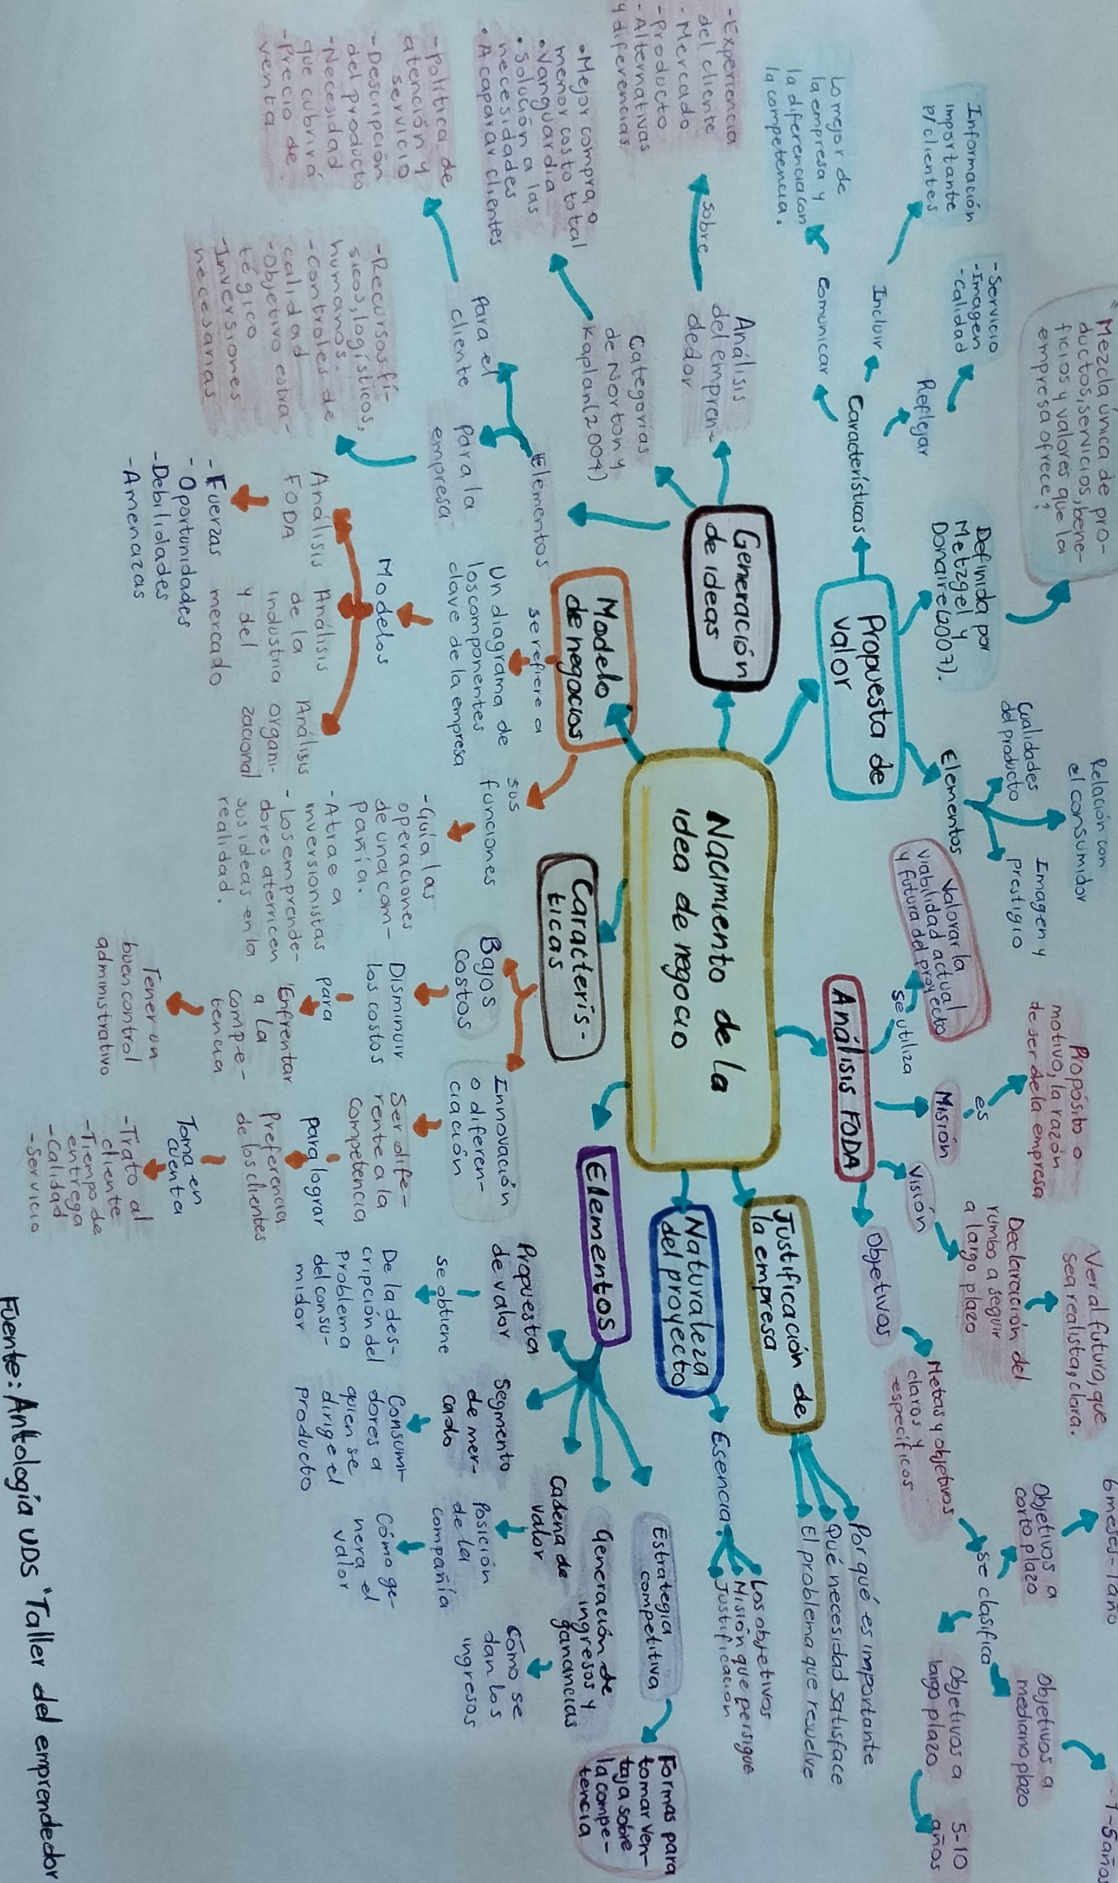 Nacimiento de la
idea de negocio
Propuesta de
valor
Definida por
Metzgel y
Donaire (2007).
"Mezcla única de pro-
ductos, servicios, bene-
ficios y valores que la
empresa ofrece"
Características
Reflejar
-Servicio
-Imagen
-Calidad
Incluir
Información
importante
p/clientes
Comunicar
Lo mejor de
la empresa y
la diferencia con
la competencia.
Elementos
Cualidades
del producto
Relación con
el consumidor
Imagen y
prestigio
Generación
de ideas
Análisis
del empren-
dedor
sobre
-Experiencia
del cliente
-Mercado
-Producto
-Alternativas
y diferencias
Categorías
de Norton y
Kaplan (2004)
•Mejor compra o
menor costo total
•Vanguardia
•Solución a las
necesidades
•Acaparar clientes
Elementos
Para el
cliente
-Política de
atención y
servicio
-Descripción
del producto
-Necesidad
que cubrirá
-Precio de
venta
Para la
empresa
-Recursos fí-
sicos, logísticos,
humanos.
-Controles de
calidad
-Objetivo estra-
tégico
-Inversiones
necesarias
Modelo
de negocios
se refiere a
Un diagrama de
los componentes
clave de la empresa
Modelos
Análisis
FODA
-Fuerzas
-Oportunidades
-Debilidades
-Amenazas
Análisis
de la
industria
y del
mercado
Análisis
organi-
zacional
sus
funciones
-Guía las
operaciones
de una com-
pañía.
-Atrae a
inversionistas
-Los emprende-
dores aterricen
sus ideas en la
realidad.
Caracterís-
ticas
Bajos
costos
Disminuir
los costos
para
Enfrentar
a la
compe-
tencia
Tener un
buen control
administrativo
Innovación
o diferen-
ciación
Ser dife-
rente a la
competencia
para lograr
Preferencia
de los clientes
Toma en
cuenta
-Trato al
cliente
-Tiempo de
entrega
-Calidad
-Servicio
Elementos
Propuesta
de valor
se obtiene
De la des-
cripción del
problema
del consu-
midor
Segmento
de mer-
cado
Consumi-
dores a
quien se
dirige el
producto
Cadena de
valor
Posición
de la
compañía
Cómo ge-
nera el
valor
Generación de
ingresos y
ganancias
Cómo se
dan los
ingresos
Estrategia
competitiva
Formas para
tomar ven-
taja sobre
la compe-
tencia
Naturaleza
del proyecto
Esencia
Los objetivos
Misión que persigue
Justificación
Justificación de
la empresa
Por qué es importante
Qué necesidad satisface
El problema que resuelve
Análisis FODA
se utiliza
Valorar la
viabilidad actual
y futura del proyecto
Misión
es
Propósito o
motivo, la razón
de ser de la empresa
Visión
Declaración del
rumbo a seguir
a largo plazo
Ver al futuro, que
sea realista, clara.
Objetivos
Metas y objetivos
claros y
específicos
se clasifica
Objetivos a
corto plazo
6 meses-1 año
Objetivos a
mediano plazo
1-5 años
Objetivos a
largo plazo
5-10
años
Fuente: Antología UDS "Taller del emprendedor